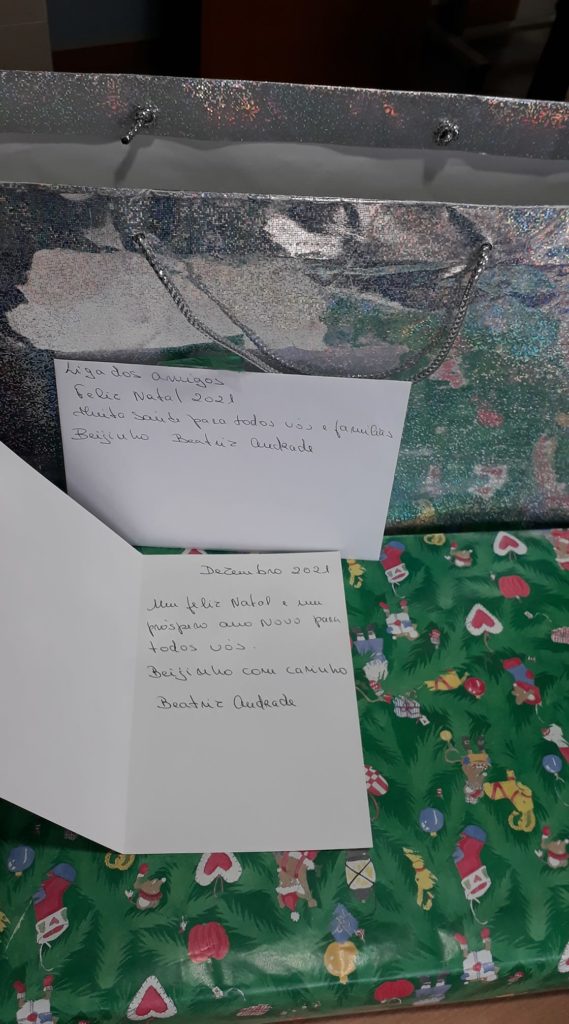 Liga dos Amigos
Feliz Natal 2021
Muita saúde para todos vós e famílias
Beijinho Beatriz Andrade
Dezembro 2021
Um feliz Natal e um
próspero ano Novo para
todos vós.
Beijinho com carinho
Beatriz Andrade